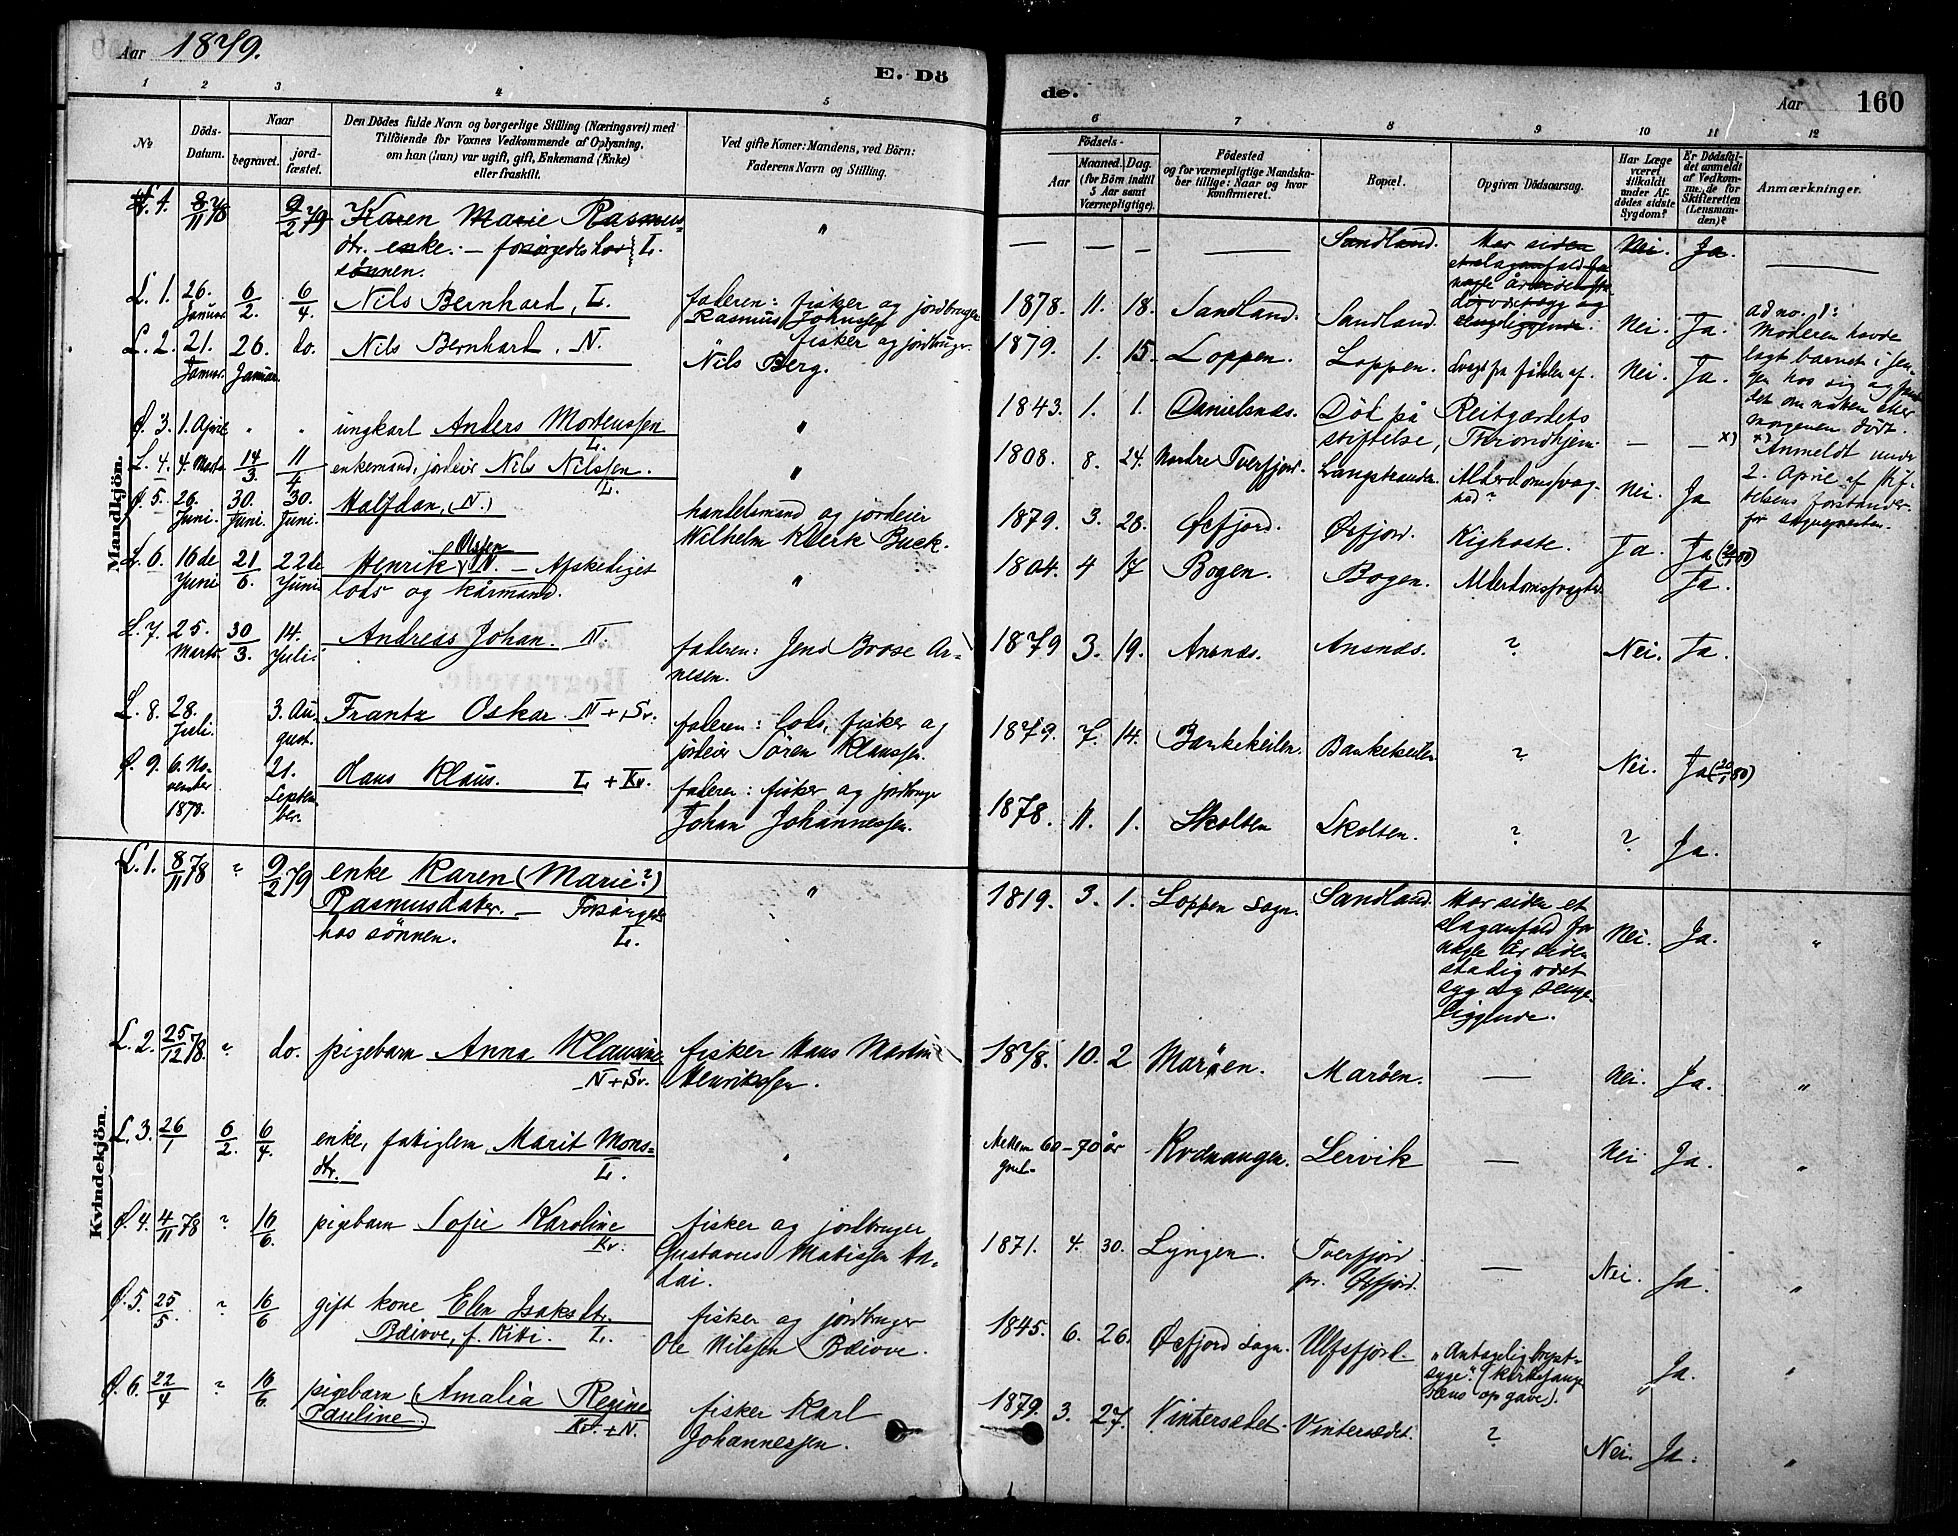 Aar 1879.
E. Dö
de.
Aar
160
1 2 3 4 5
6 7 8 9 10 11 12
No.
Döds-
Datum.
Naar
begravet.
jord-
fæstet.
Den Dödes fulde Navn og borgerlige Stilling (Næringsvei) med
Tilföiende for Voxnes Vedkommende af Oplysning,
om han (hun) var ugift, gift, Enkemand (Enke)
eller fraskilt.
Ved gifte Koner: Mandens, ved Börn:
Faderens Navn og Stilling.
Födsels-
Aar
Maaned. Dag.
(for Börn indtil
5 Aar samt
Værnepligtige).
Födested
og for værnepligtige Mandska-
ber tillige: Naar og hvor
konfirmeret.
Bopæl.
Opgiven Dödsaarsag.
Har Læge
været
tilkaldt
under Af-
dödes sidste
Sygdom?
Er Dödsfal-
det anmeldt
af Vedkom-
mende for
Skifteretten
(Lensman-
den)?
Anmærkninger.
Mandkjön.
8/11 78 9/2 79 Karen Marie Rasmus-
dtr. enke: – forsørgedes hos L.
sønnen.
" — — — — Sandland. Har siden Nei. Ja. —
L. 1. 26. Januar 6/2. 6/4. Nils Bernhard, L. faderen: fisker og jordbruger
Rasmus Johnsen
1878. 11. 18. Sandland. Sandland. Nei. Ja. ad no. 1:
Moderen havde
lagt barnet i sen-
gen hos sig og
det om natten eller
morgenen dödt.
L. 2. 21. Januar. 26. Januar. do. Nils Bernhard. N. fisker og jordbruger
Nils Berg.
1879. 1. 15. Loppen. Loppen. Svag fra fødslen af. Nei. Ja.
Ø. 3. 1. April " " ungkarl Anders Mortenssen
L. "
1843. 1. 1. Danielsnæs. Död på Reitgærdets
stiftelse, Throndhjem. — — x)
x) Anmeldt under
2. April af stif-
telsens forstander
for sognepresten.
L. 4. 4. Marts 14/3 11/4 enkemand, jordeier Nils Nilssen.
L. "
1808. 8. 24. Nordre Tverfjord. Langstranden. Alderdomssvag-
hed? Nei. Ja
Ø. 5. 26. Juni. 30. Juni. 30. Juni. Halfdan, (N.) handelsmand og jordeier
Wilhelm Klerk Buck.
1879. 3. 26. Øxfjord. Øxfjord. Kighoste. Ja. Ja
L. 6. 16de Juni 21/6. 22de Juni Henrik Olssen N. – Afskediget
lods og kårmand. "
1804. 4 17 Bogen. Bogen. Alderdomssvaghed. Ja.
L. 7. 25. Marts. 30/3. 14. Juli. Andreas Johan. N. faderen: Jens Brose Ar-
nesen.
1879 3. 19. Ansnæs. Ansnæs. ? Nei. Ja.
L. 8. 28. Juli. 3. Au-
gust. Frantz Oskar N + Sv. faderen: lods, fisker og
jordeier Sören Klaussen.
1879. 7. 14. Bankekeilen. Bankekeilen ? Nei. Ja
Ø. 9. 6. No-
vember
1878. 21.
Septem-
ber. Hans Klaus. L + Kv. faderen: fisker og jordbruger
Johan Johannessen.
1878. 11. 1. Skolten Skolten. ? ? Ja.
Kvindekjön.
L. 1. 8/11 78 " 9/2 79 enke Karen (Marie?)
Rasmusdater. – Forsørges
hos sönnen. L.
" 1819. 3. 1. Loppen sogn. Sandland. Har siden et
slaganfald for
nogle år siden
stadig været
syg og senge-
liggende. Nei. Ja. "
L. 2. 25/12 78. ? do. pigebarn Anna Klausine
N + Sv. fisker Hans Martin
Henrikssen.
1878. 10. 2 Maröen. Maröen. — Nei. Ja. "
L. 3. 26/1 6/2. 6/4. enke, fattiglem Marit Mons-
dtr. L. "
Mellem 60–70 år Kvænangen. Lervik — Nei Ja. "
Ø. 4. 4/11 78 ? 16/6. pigebarn Sofie Karoline
Kv. fisker og jordbruger
Gustavus Matissen
1871. 4. 30. Lyngen. Tverfjord
pr. Øxfjord. — Nei. Ja. "
Ø. 5. 25/5. ? 16/6 gift kone Elen Isaksdtr.
Bæivve, f. Kiti. L. fisker og jordbruger
Ole Nilssen Bæivve.
1845. 6. 26. Øxfjord sogn. Ulfsfjord. "Antagelig bryst-
syge". (kirkesanger
opgave). " Ja. "
Ø. 6. 22/4 ? 16/6. pigebarn (Amalia Regine
Pauline.) Kv. + N. fisker Karl
Johannessen.
1879. 3. 27. Vintersædet. Vintersædet. ? Nei. Ja. "